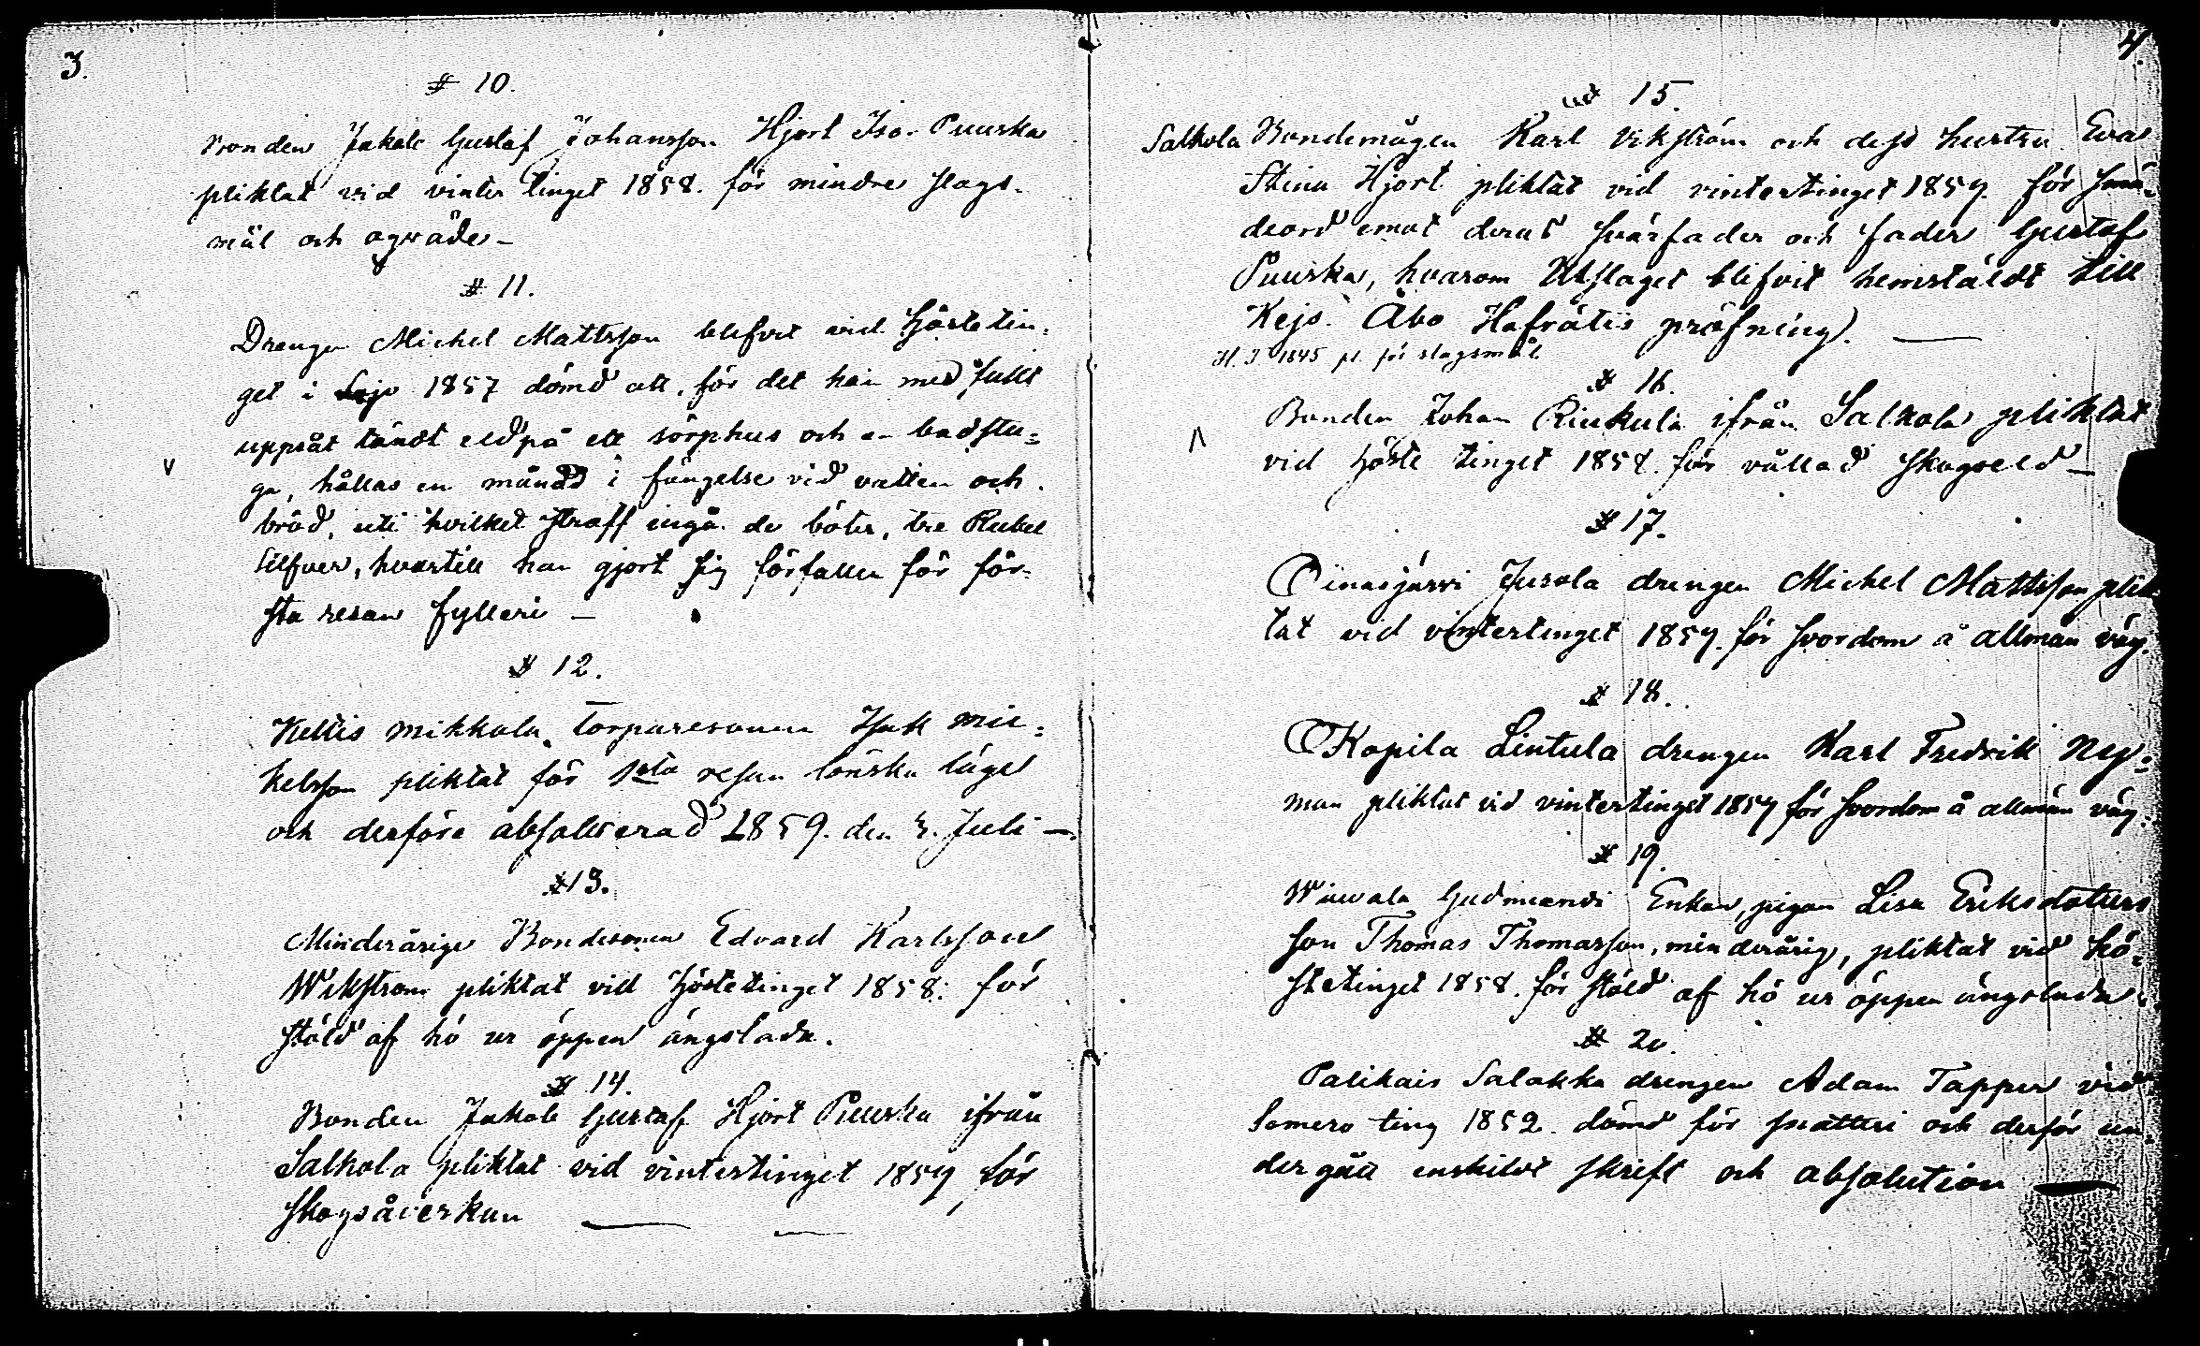 3.
# 10.
Bonden Jakob Gustaf Johansson Hjort Iso-Puuska
pliktat vid vinter tinget 1858. för mindre slags-
mål och oqväde—
# 11.
Drengen Michel Mattsson blefvit vid höste tin-
get i 1857 dömd att, för det han med fullt
uppsåt tändt eld på ett sörphus och en badstu=
ga, hållas en månad i fängelse vid vatten och
bröd, uti hvilket straff ingå de böter, tre Rubel
Silfver, hvartill han gjort sig förfallen för för-
sta resan fylleri —
# 12.
Kettis Mikkola Torparesonen Isak Mic=
kelsson pliktat för 1sta resan lönska läge
och derföre absolverad 1859. den 3. Juli —.
# 13.
Minderårige Bondesonen Edvard Karlsson
Wikström pliktat vid höstetinget 1858. för
stöld af hö ur öppen ängslada.
# 14.
Bonden Jakob Gustaf Hjort Puuska ifrån
Salkola pliktat vid vintertinget 1859, för
skogsåverkan —
4.
# 15.
Salkola Bondemågen Karl Vikström och dess hustru Eva
Stina Hjort pliktat vid vintertinget 1859. för smä-
deord emot deras svärfader och fader Gustaf
Puuska, hvarom Utslaget blifvit hemstäldt till
Kejs. Åbo Hofrätts pröfning). —
H. T. 1845 pl. för slagsmål
# 16.
Bonden Johan Riukula ifrån Salkola pliktat
vid höste tinget 1858. för vållad skogseld —
# 17.
Oinasjärvi Jusola drengen Michel Mattsson plik-
tat vid vintertinget 1859. för svordom å allmän väg.
# 18.
Kopila Lintula drengen Karl Fredrik Ny=
man pliktat vid vintertinget 1859 för svordom å allmän väg.
# 19.
Viuvala Gudmundi Enkan, pigan Lisa Eriksdotters
son Thomas Thomasson, minderårig, pliktat vid hö-
stetinget 1858. för stöld af hö ur öppen ängslada.
# 20.
Palikais Salakka drengen Adam Tapper vid
Somero ting 1852. dömd för snatteri och derför un-
dergått enskildt skrift och absolution —